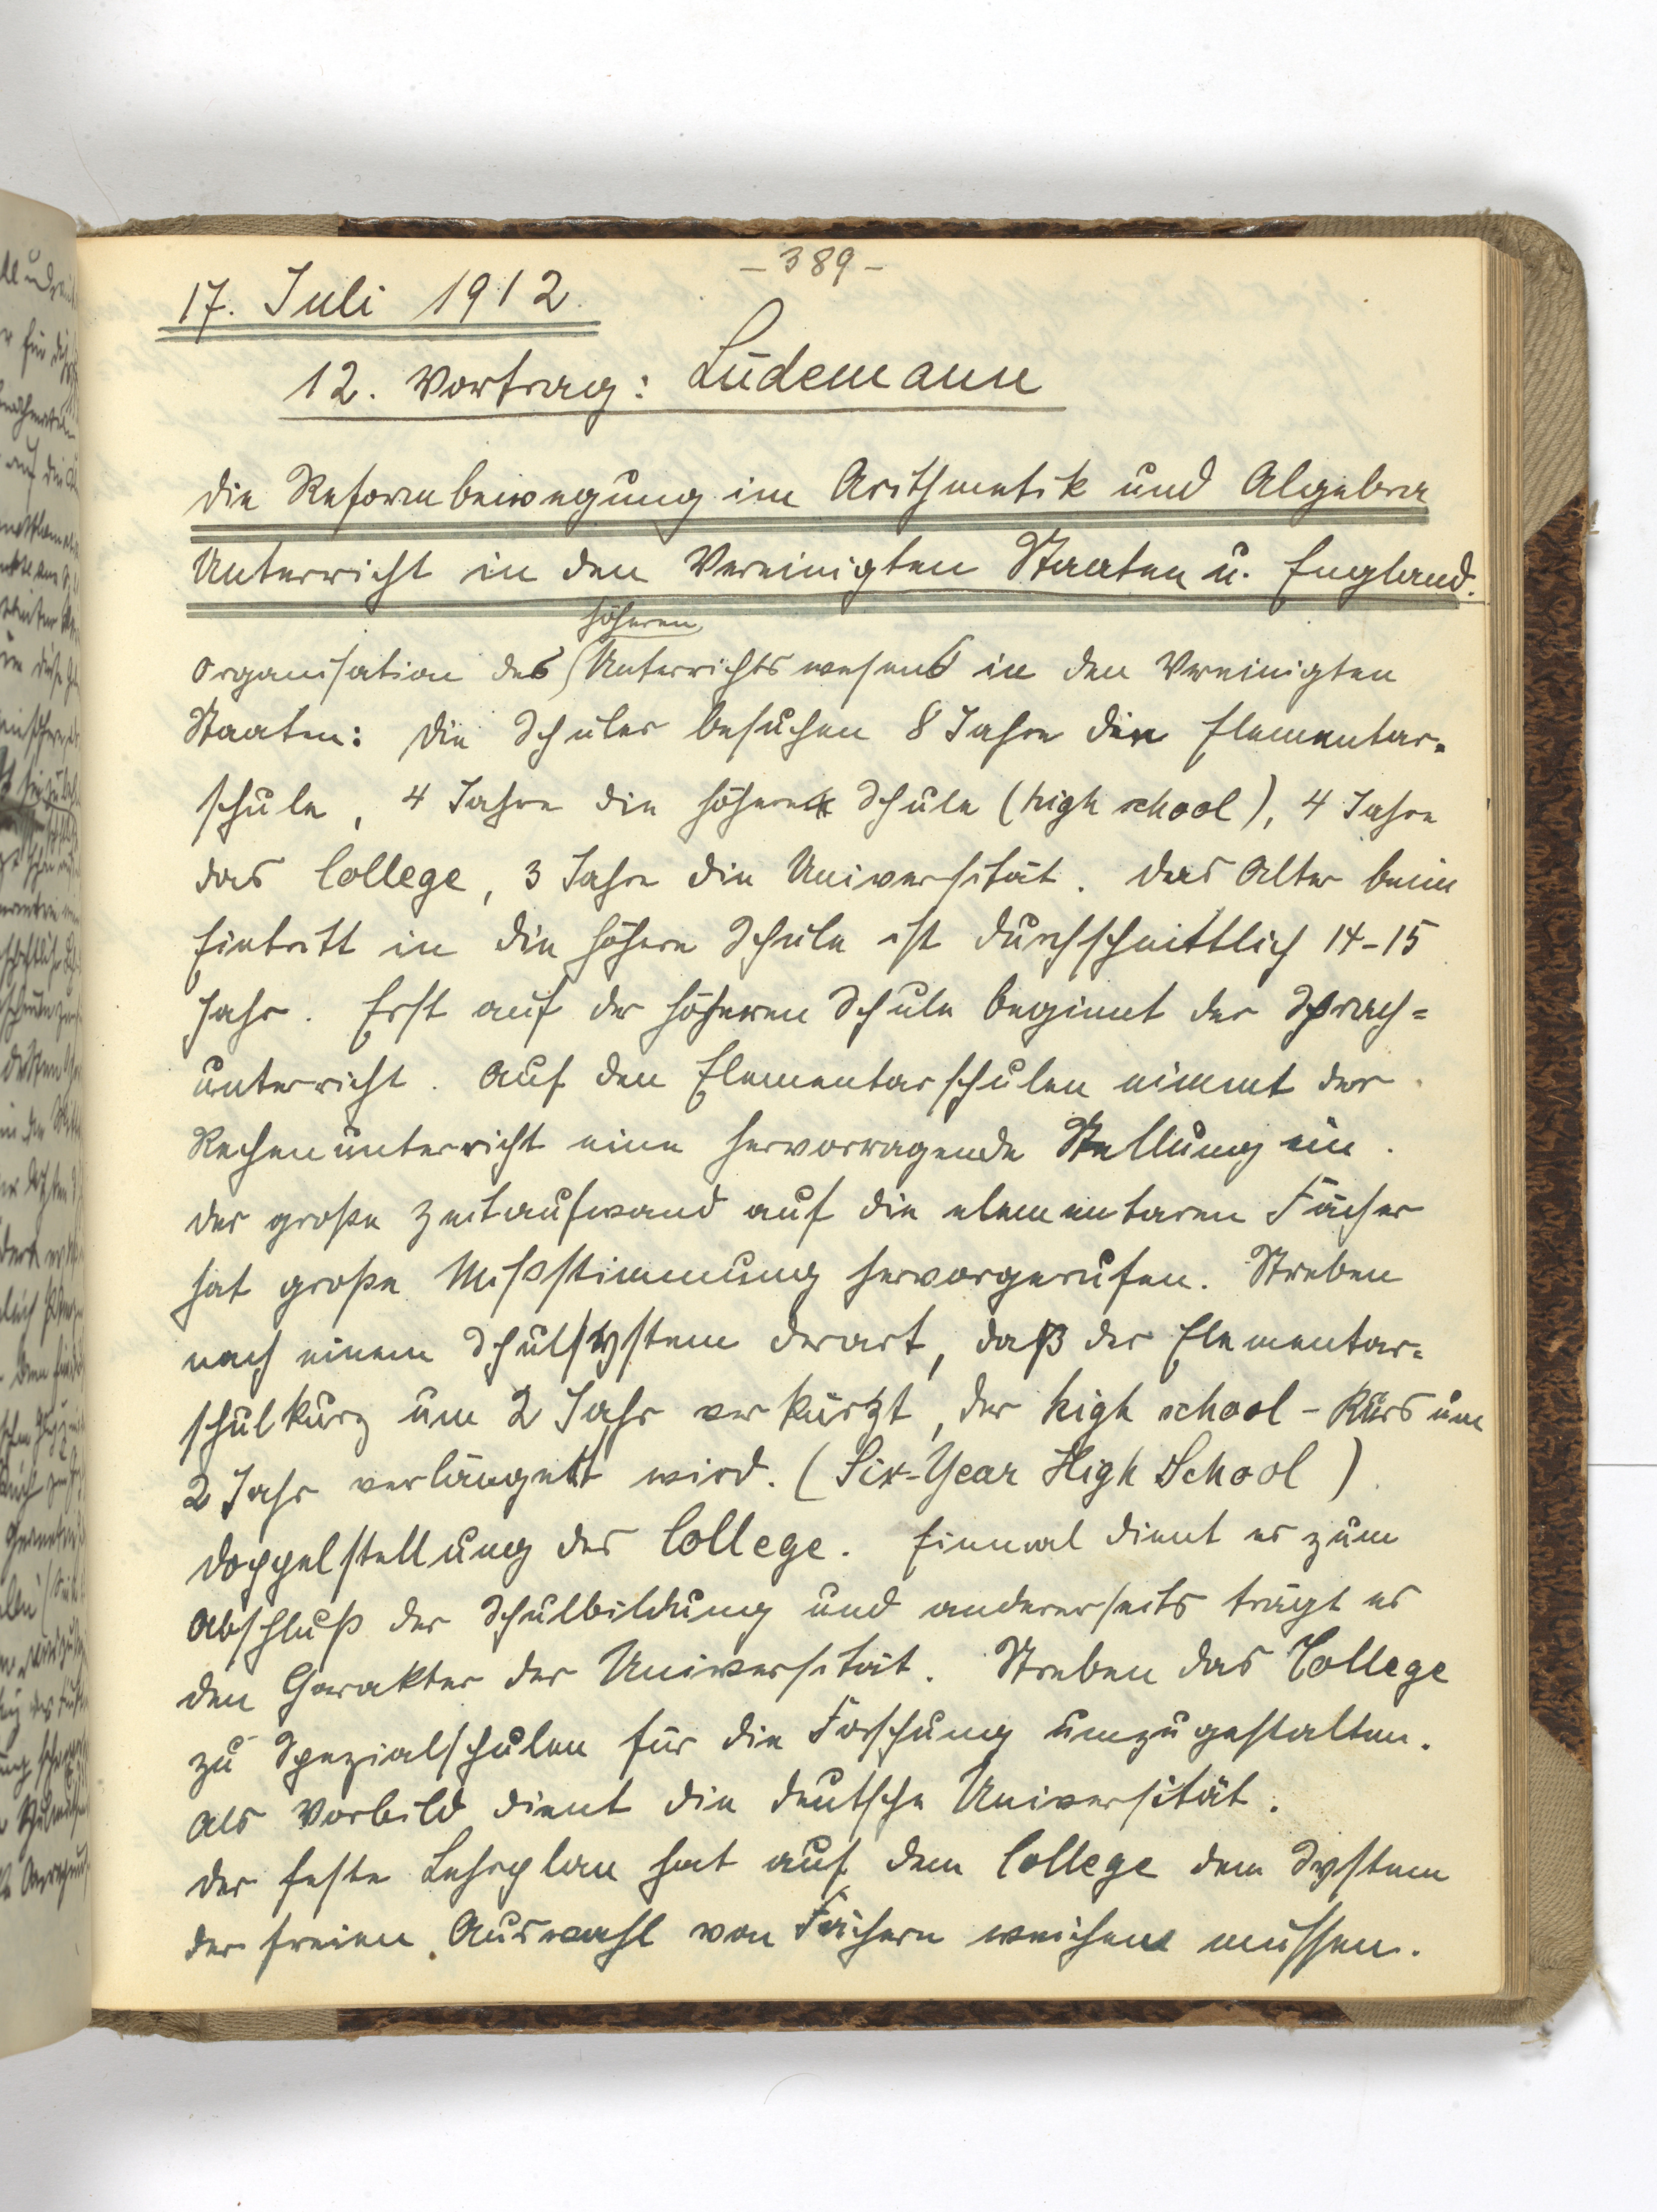 - 389 -
17. Juli 1912.
12. Vortrag: Lüdemann
Die Reformbewegung im Arithmetik und Algebra
Unterricht in den Vereinigten Staaten u. England.
höheren
Organisation des Unterrichtswesens in den Vereinigten
Staaten: Die Schüler besuchen 8 Jahre die Elementar-
schule, 4 Jahre die höhere Schule (high school), 4 Jahre
das College, 3 Jahre die Universität. Das Alter beim
Eintritt in die höhere Schule ist durchschnittlich 14-15
Jahr. Erst auf der höheren Schule beginnt der Sprach-
unterricht. Auf den Elementarschulen nimmt der
Rechenunterricht eine hervorragende Stellung ein.
Der große Zeitaufwand auf die elementaren Fächer
hat große Mißstimmung hervorgerufen. Streben
nach einem Schulsystem derart, daß der Elementar-
schulkurs um 2 Jahr verkürzt, der high school-Kurs um
2 Jahr verlängert wird. (Six-Year High School)
Doppelstellung des College. Einmal dient es zum
Abschluß der Schulbildung und andererseits trägt es
den Charakter der Universität. Streben das College
zu Spezialschulen für die Forschung umzugestalten.
Als Vorbild dient die deutsche Universität.
Der feste Lehrplan hat auf dem College dem System
der freien Auswahl von Fächern weichen müssen.